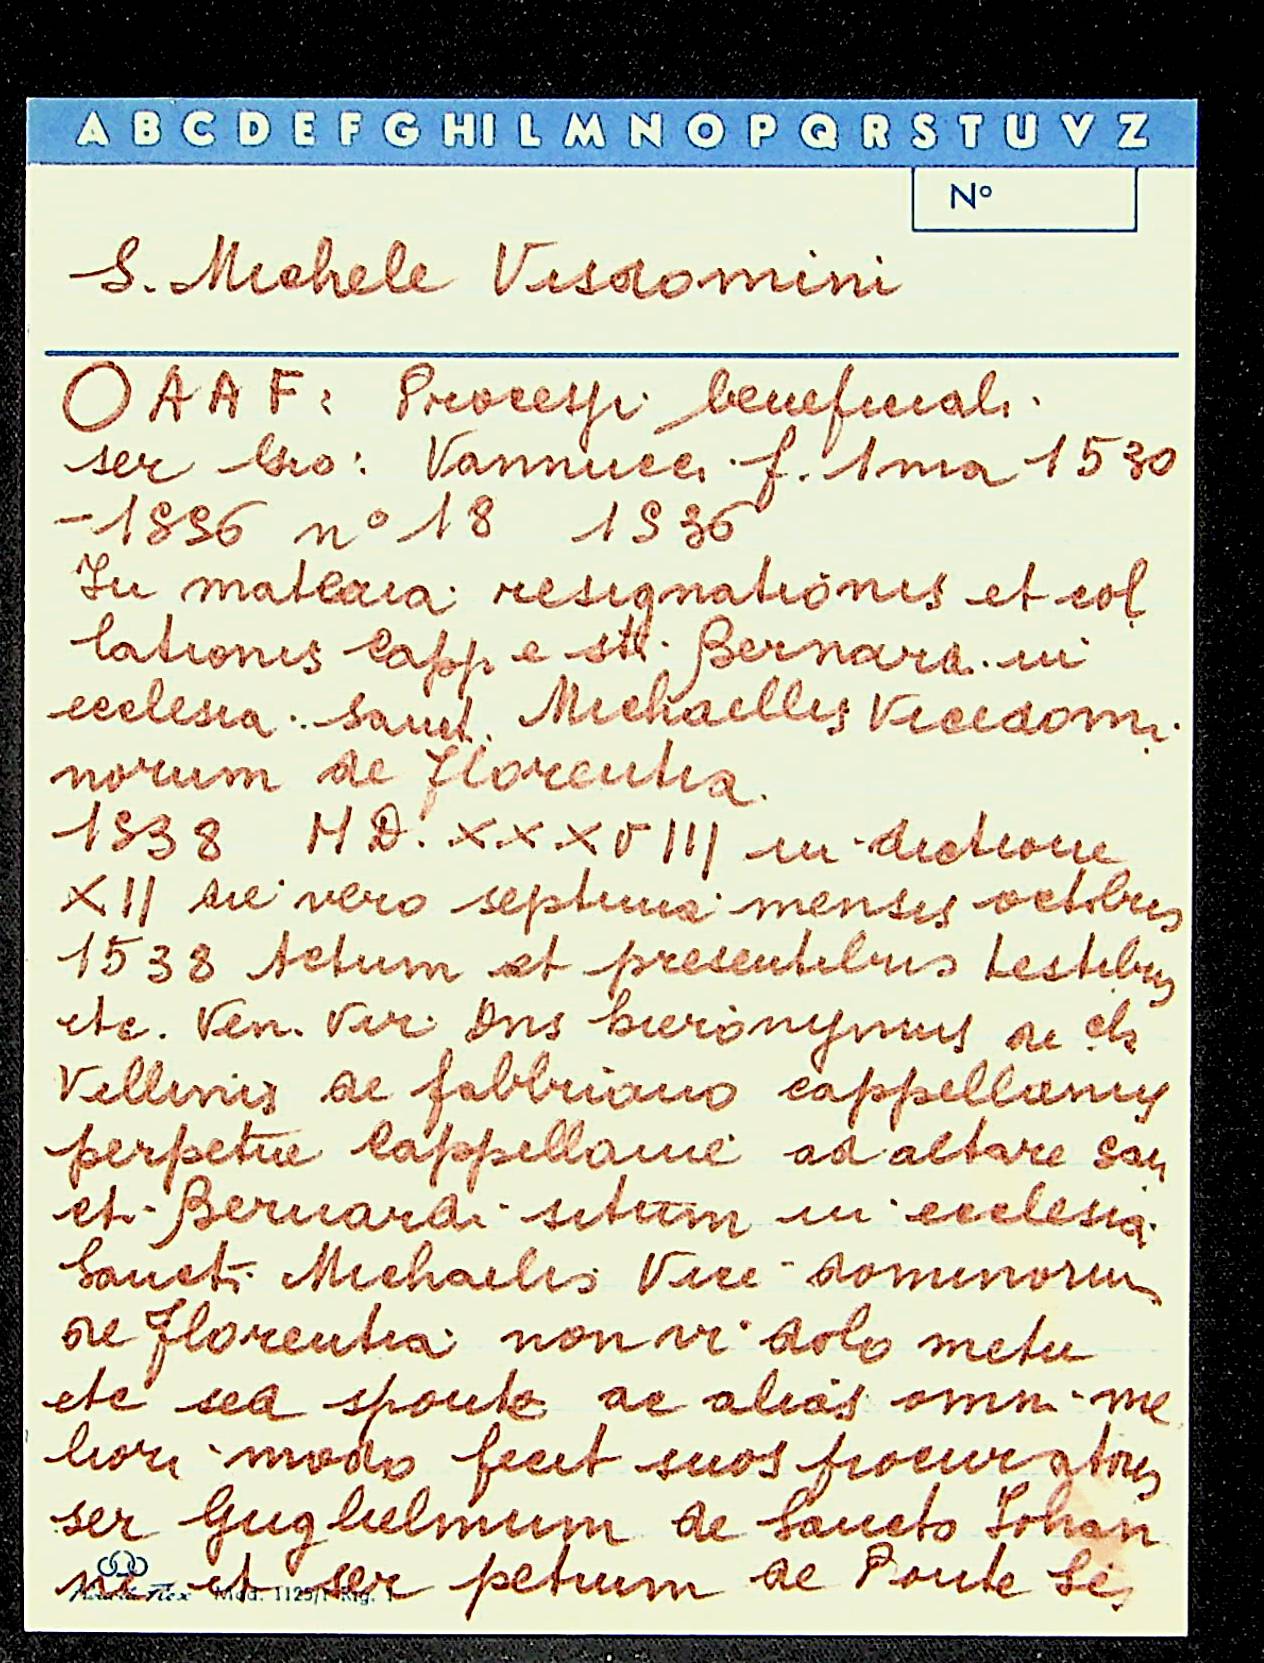 A B C D E F G H I L M N O P Q R S T U V Z
Nº
S. Michele Visdomini
O A A F: Processi beneficiali
ser Gio: Vannucci f. 1ma 1530
-1536 nº 18 1536
In materia resignationis et col
lationis Capp e sti Bernardi in
ecclesia Sancti Michaellis Vicedomi
norum de Florentia.
1538 M D. XXXVIII in dictione
XII die vero septima mensis octobris
1538 Actum et presentibus testibus
etc. Ven. Vir Dns hieronymus de
Vellinis de fabbriano cappellanus
perpetue Cappellanie ad altare San
cti Bernardi situm in ecclesia
Sancti Michaelis Vice dominorum
de Florentia non vi dolo metu
etc sed sponte ac alias omni me
liori modo fecit suos procuratores
ser Guglielmum de Sancto Johan
ne et ser petrum de Ponte Se
Mod. 1125/1 Rig.